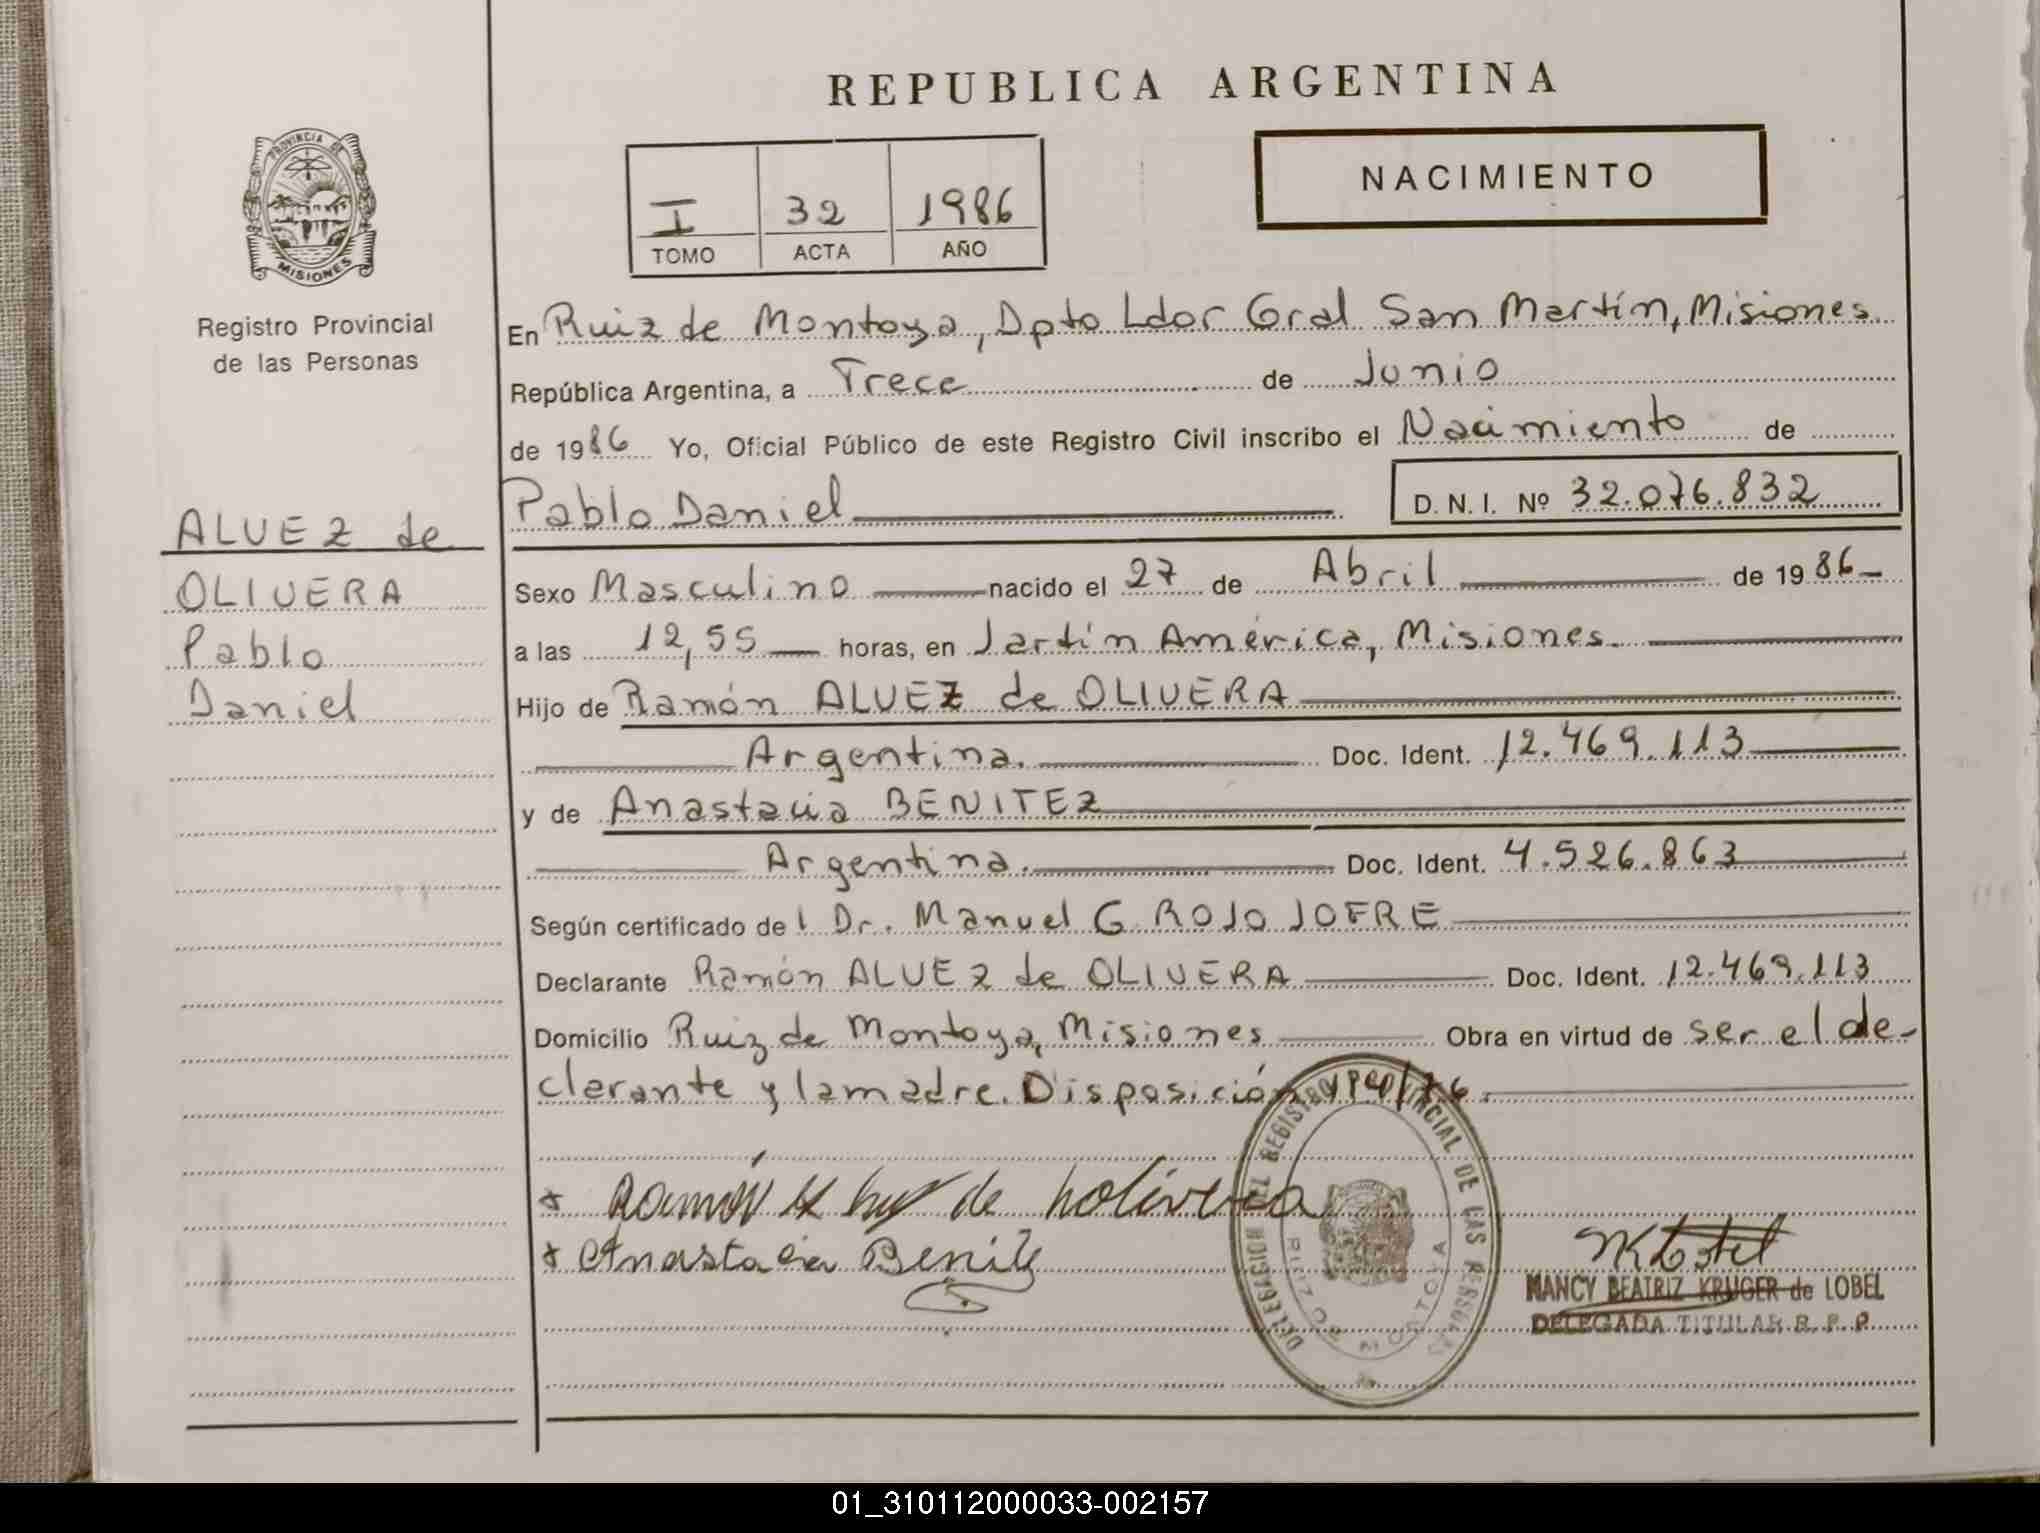 REPUBLICA ARGENTINA
PROVINCIA DE
MISIONES
Registro Provincial
de las Personas
I 32 1986
TOMO ACTA AÑO
NACIMIENTO
En Ruiz de Montoya, Dpto Ldor Gral San Martín, Misiones
República Argentina, a Trece de Junio
de 1986 Yo, Oficial Público de este Registro Civil inscribo el Nacimiento de
Pablo Daniel D. N. I. Nº 32.076.832
ALVEZ de
OLIVERA
Pablo
Daniel
Sexo Masculino nacido el 27 de Abril de 1986
a las 12,55 horas, en Jartín América, Misiones.
Hijo de Ramón ALVEZ de OLIVERA
Argentina. Doc. Ident. 12.469.113
y de Anastacia BENITEZ
Argentina. Doc. Ident. 4.526.863
Según certificado del Dr. Manuel G. ROJO JOFRE
Declarante Ramón ALVEZ de OLIVERA Doc. Ident. 12.469.113
Domicilio Ruiz de Montoya, Misiones Obra en virtud de ser el de-
clarante y la madre. Disposición
Ramón de holivera
Anastacia Benitz
DELEGACION DEL REGISTRO PROVINCIAL DE LAS PERSONAS
RUIZ DE MONTOYA
NANCY BEATRIZ KRUGER de LOBEL
DELEGADA TITULAR R. P. P.
01_310112000033-002157